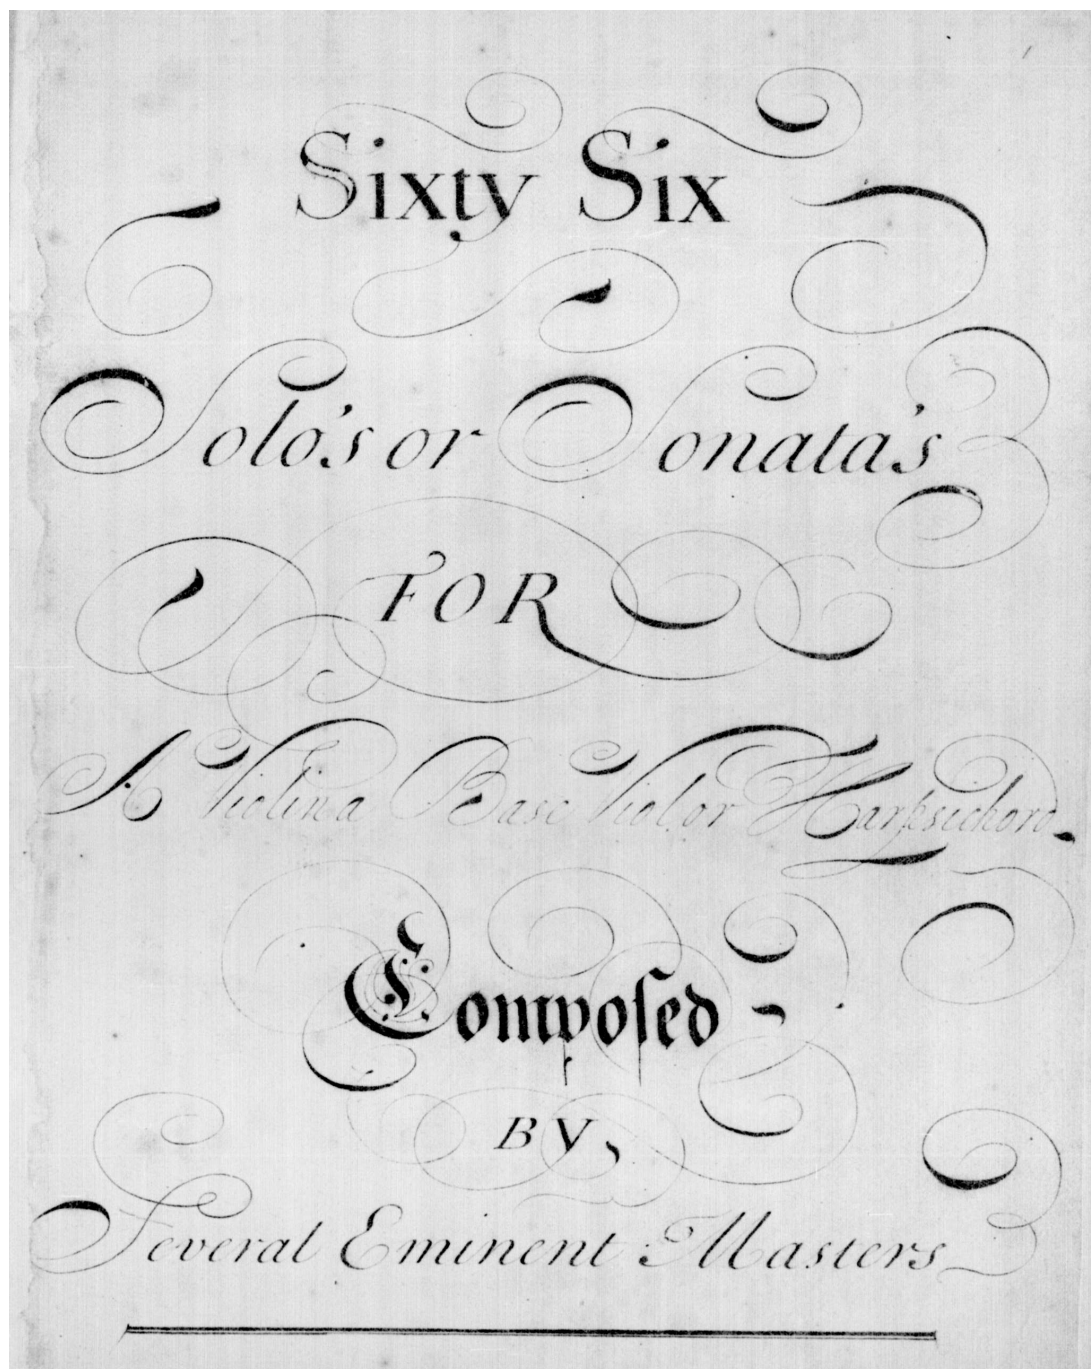 Sixty Six
Solo's or Sonata's
FOR
A Violin a Base Viol or Harpsichord
Compoſed
BY
Several Eminent Masters